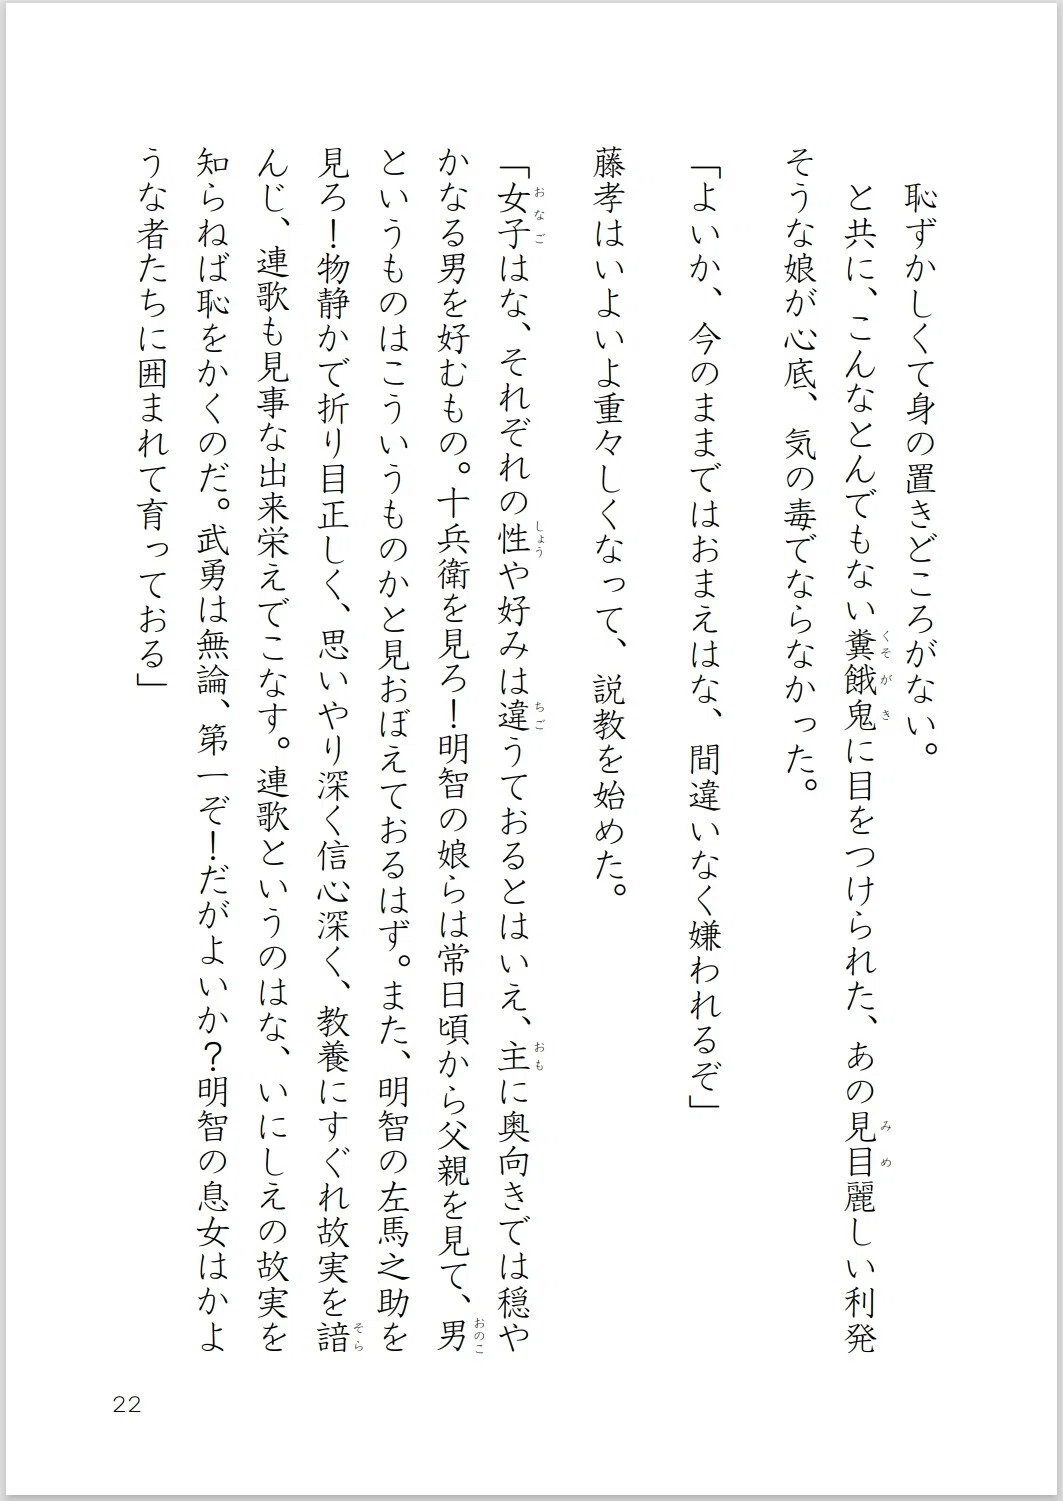 恥ずかしくて身の置きどころがない。
と共に、こんなとんでもない糞餓鬼に目をつけられた、あの見目麗しい利発
くそがき
みめ
そうな娘が心底、気の毒でならなかった。
「よいか、今のままではおまえはな、間違いなく嫌われるぞ」
藤孝はいよいよ重々しくなって、説教を始めた。
「女子はな、それぞれの性や好みは違うておるとはいえ、主に奥向きでは穏や
おなご
しょう
ちご
おも
かなる男を好むもの。十兵衛を見ろ！明智の娘らは常日頃から父親を見て、男
おのこ
というものはこういうものかと見おぼえておるはず。また、明智の左馬之助を
見ろ！物静かで折り目正しく、思いやり深く信心深く、教養にすぐれ故実を諳
そら
んじ、連歌も見事な出来栄えでこなす。連歌というのはな、いにしえの故実を
知らねば恥をかくのだ。武勇は無論、第一ぞ！だがよいか？明智の息女はかよ
うな者たちに囲まれて育っておる」
22